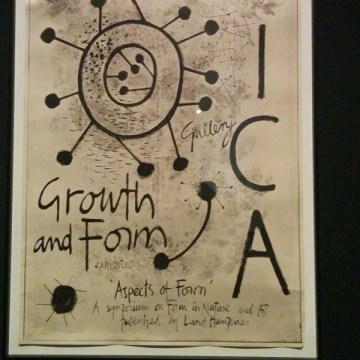 ICA
Gallery
Growth
and Form
exhibition
'Aspects of Form'
A symposium on Form in Nature and Art
by Lund Humphries